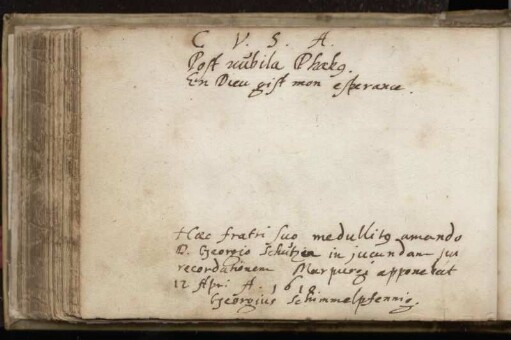 C. V. S. A.
Post nubila Phœbꝰ.
En Dieu gist mon esperance.
Hæc fratri suo medullitꝰ amando
D. Georgio Schützen in jucundam sui
recordationem Marpurgi apponebat
12 Apri A. 1618
Georgius Schimmelpfennig.